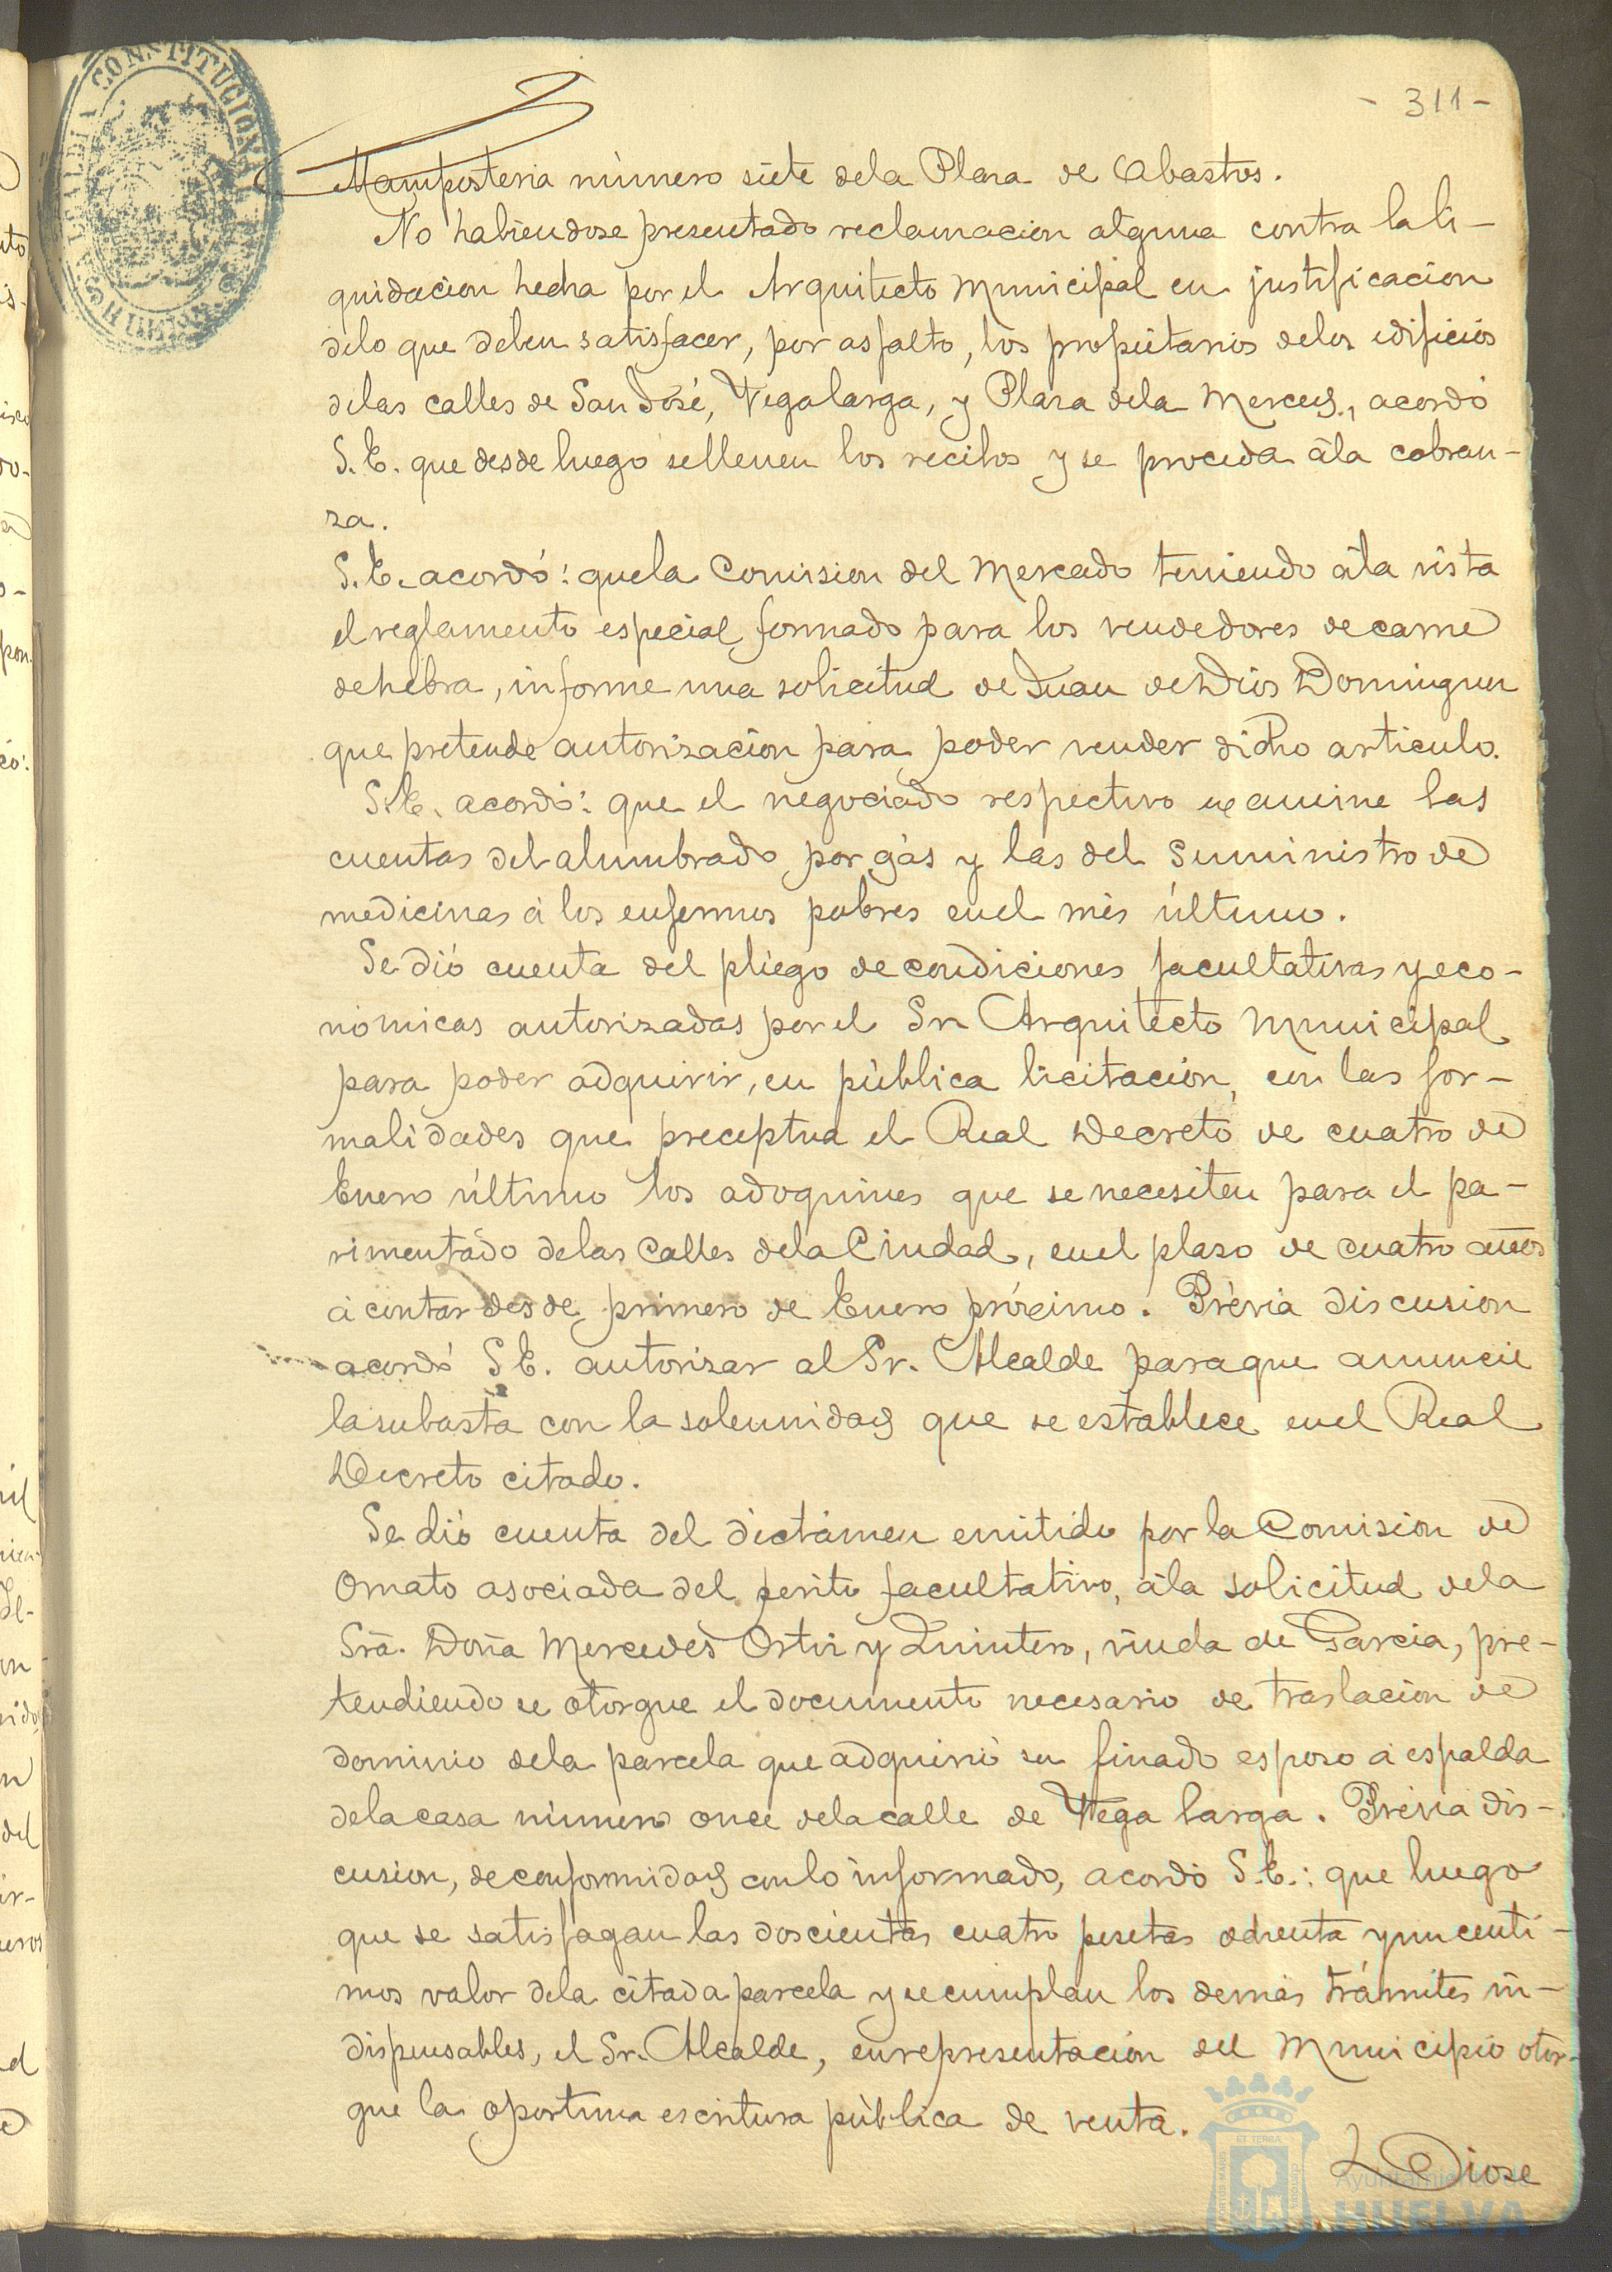 - 311 -
ALCALDÍA CONSTITUCIONAL DE HUELVA
Mampostería número siete dela Plaza de Abastos.
No habiendose presentado reclamacion alguna contra la li-
quidacion hecha por el Arquitecto Municipal en justificacion
delo que deben satisfacer, por asfalto, los propietarios delos edificios
delas calles de San José, Vegalarga, y Plaza dela Merced, acordó
S. E. que desde luego sellenen los recibos y se proceda á la cobran-
za.
S. E. acordó: quela Comision del Mercado teniendo ála vista
el reglamento especial formado para los vendedores de carne
dehebra, informe una solicitud de Juan de Dios Dominguez
que pretende autorizacion para poder vender dicho artículo.
S. E. acordó: que el negociado respectivo examine las
cuentas del alumbrado por gás y las del suministro de
medicinas á los enfermos pobres enel més último.
Se dió cuenta del pliego de condiciones facultativas y eco-
nómicas autorizadas por el Sr Arquitecto Municipal
para poder adquirir, en pública licitación, con las for-
malidades que preceptua el Real Decreto de cuatro de
Enero último los adoquines que se necesiten para el pa-
vimentado delas Calles dela Ciudad, enel plazo de cuatro años
á contar desde primero de Enero próximo. Prévia discusion
acordó S E. autorizar al Sr. Alcalde paraque anuncie
lasubasta con la solemnidad que se establece enel Real
Decreto citado.
Se dió cuenta del dictámen emitido por la Comision de
Ornato asociada del perito facultativo, ála solicitud dela
Sra. Doña Mercedes Ortiz y Quintero, viuda de Garcia, pre-
tendiendo se otorgue el documento necesario de traslacion de
dominio dela parcela que adquirió su finado esposo á espalda
dela casa número once dela calle de Vega larga. Prévia dis-
cusion, de conformidad conlo informado, acordó S. E.: que luego
que se satisfagan las doscientas cuatro pesetas ochenta y un centi-
mos valor dela citada parcela y se cumplan los demás trámites in-
dispensables, el Sr. Alcalde, enrepresentacion del Municipio otor-
gue la oportuna escritura pública de venta.
Diose
Ayuntamiento de
HUELVA